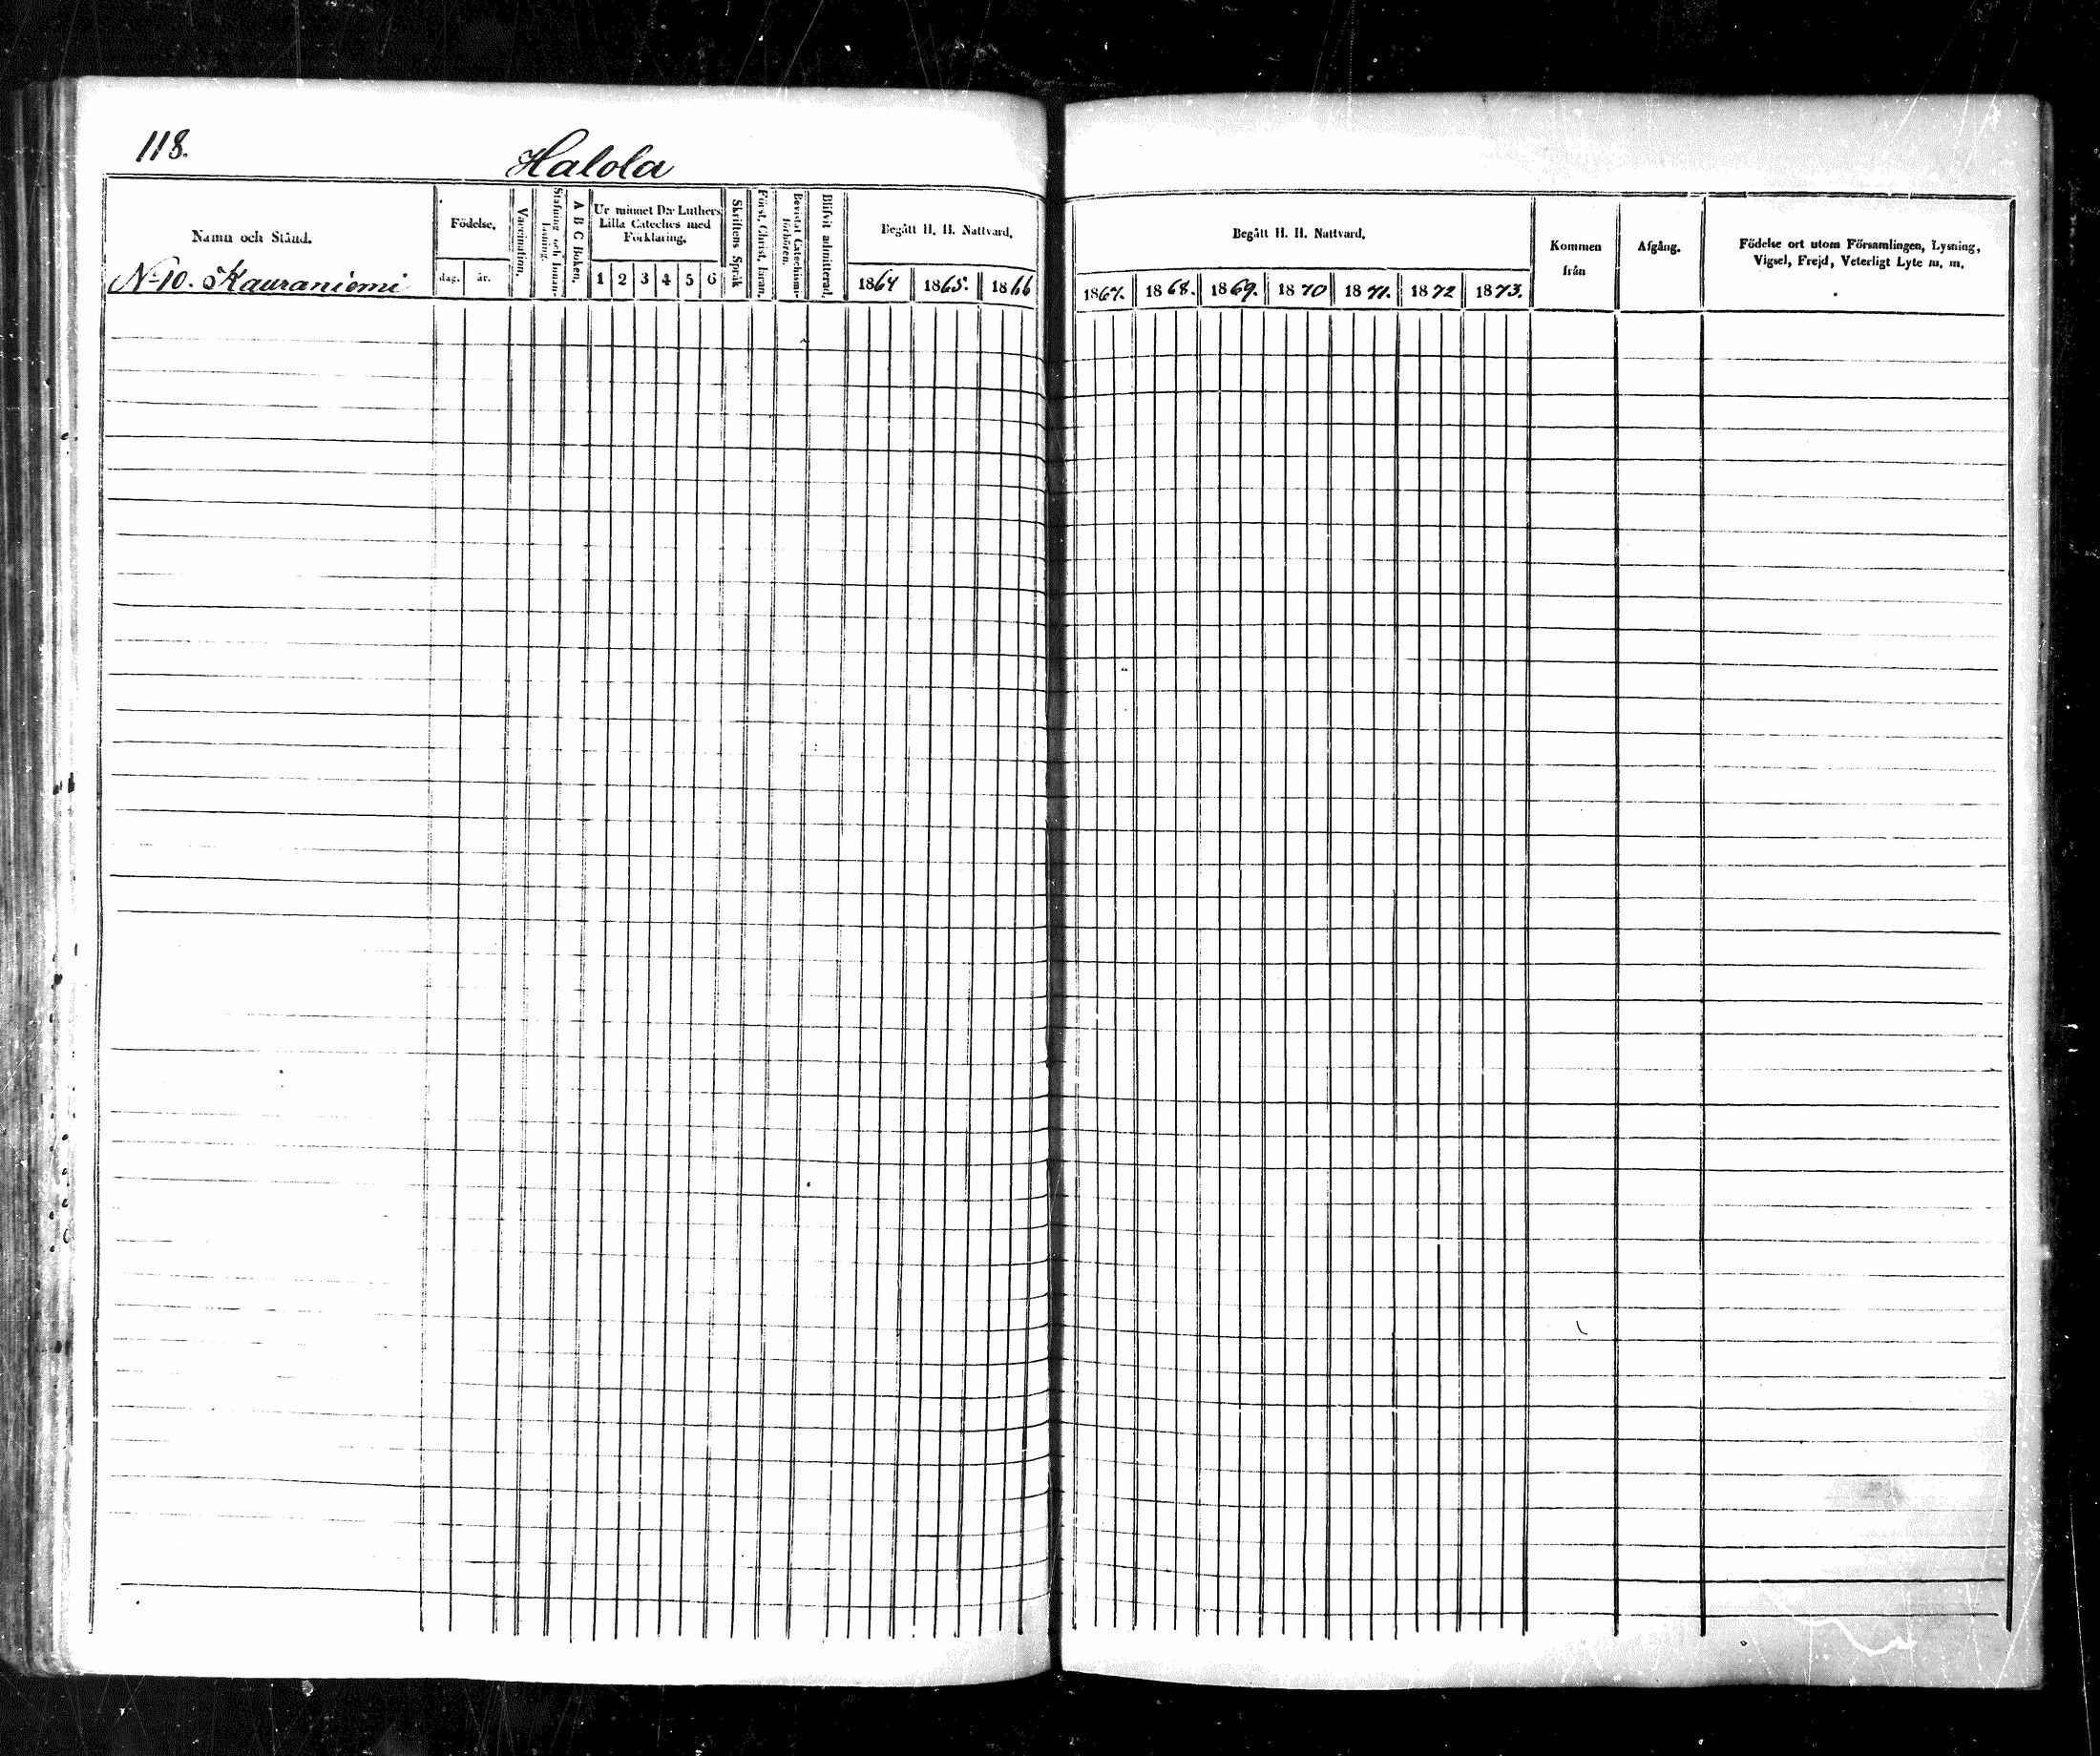 118.
Halola
Namn och Stånd.
Födelse.
dag. år.
Vaccination.
Stafning och Innan-
läsning.
A B C Boken.
Ur minnet D:r Luthers
Lilla Cateches med
Förklaring.
1 2 3 4 5 6
Skriftens Språk
Först. Christ. läran.
Bevistat Catechismi-
förhören.
Blifvit admitterad.
Begått H. H. Nattvard.
1864 1865. 1866
No 10. Kauraniemi
Begått H. H. Nattvard.
1867. 1868. 1869. 1870 1871. 1872 1873.
Kommen
från
Afgång.
Födelse ort utom Församlingen, Lysning,
Vigsel, Frejd, Veterligt Lyte m. m.